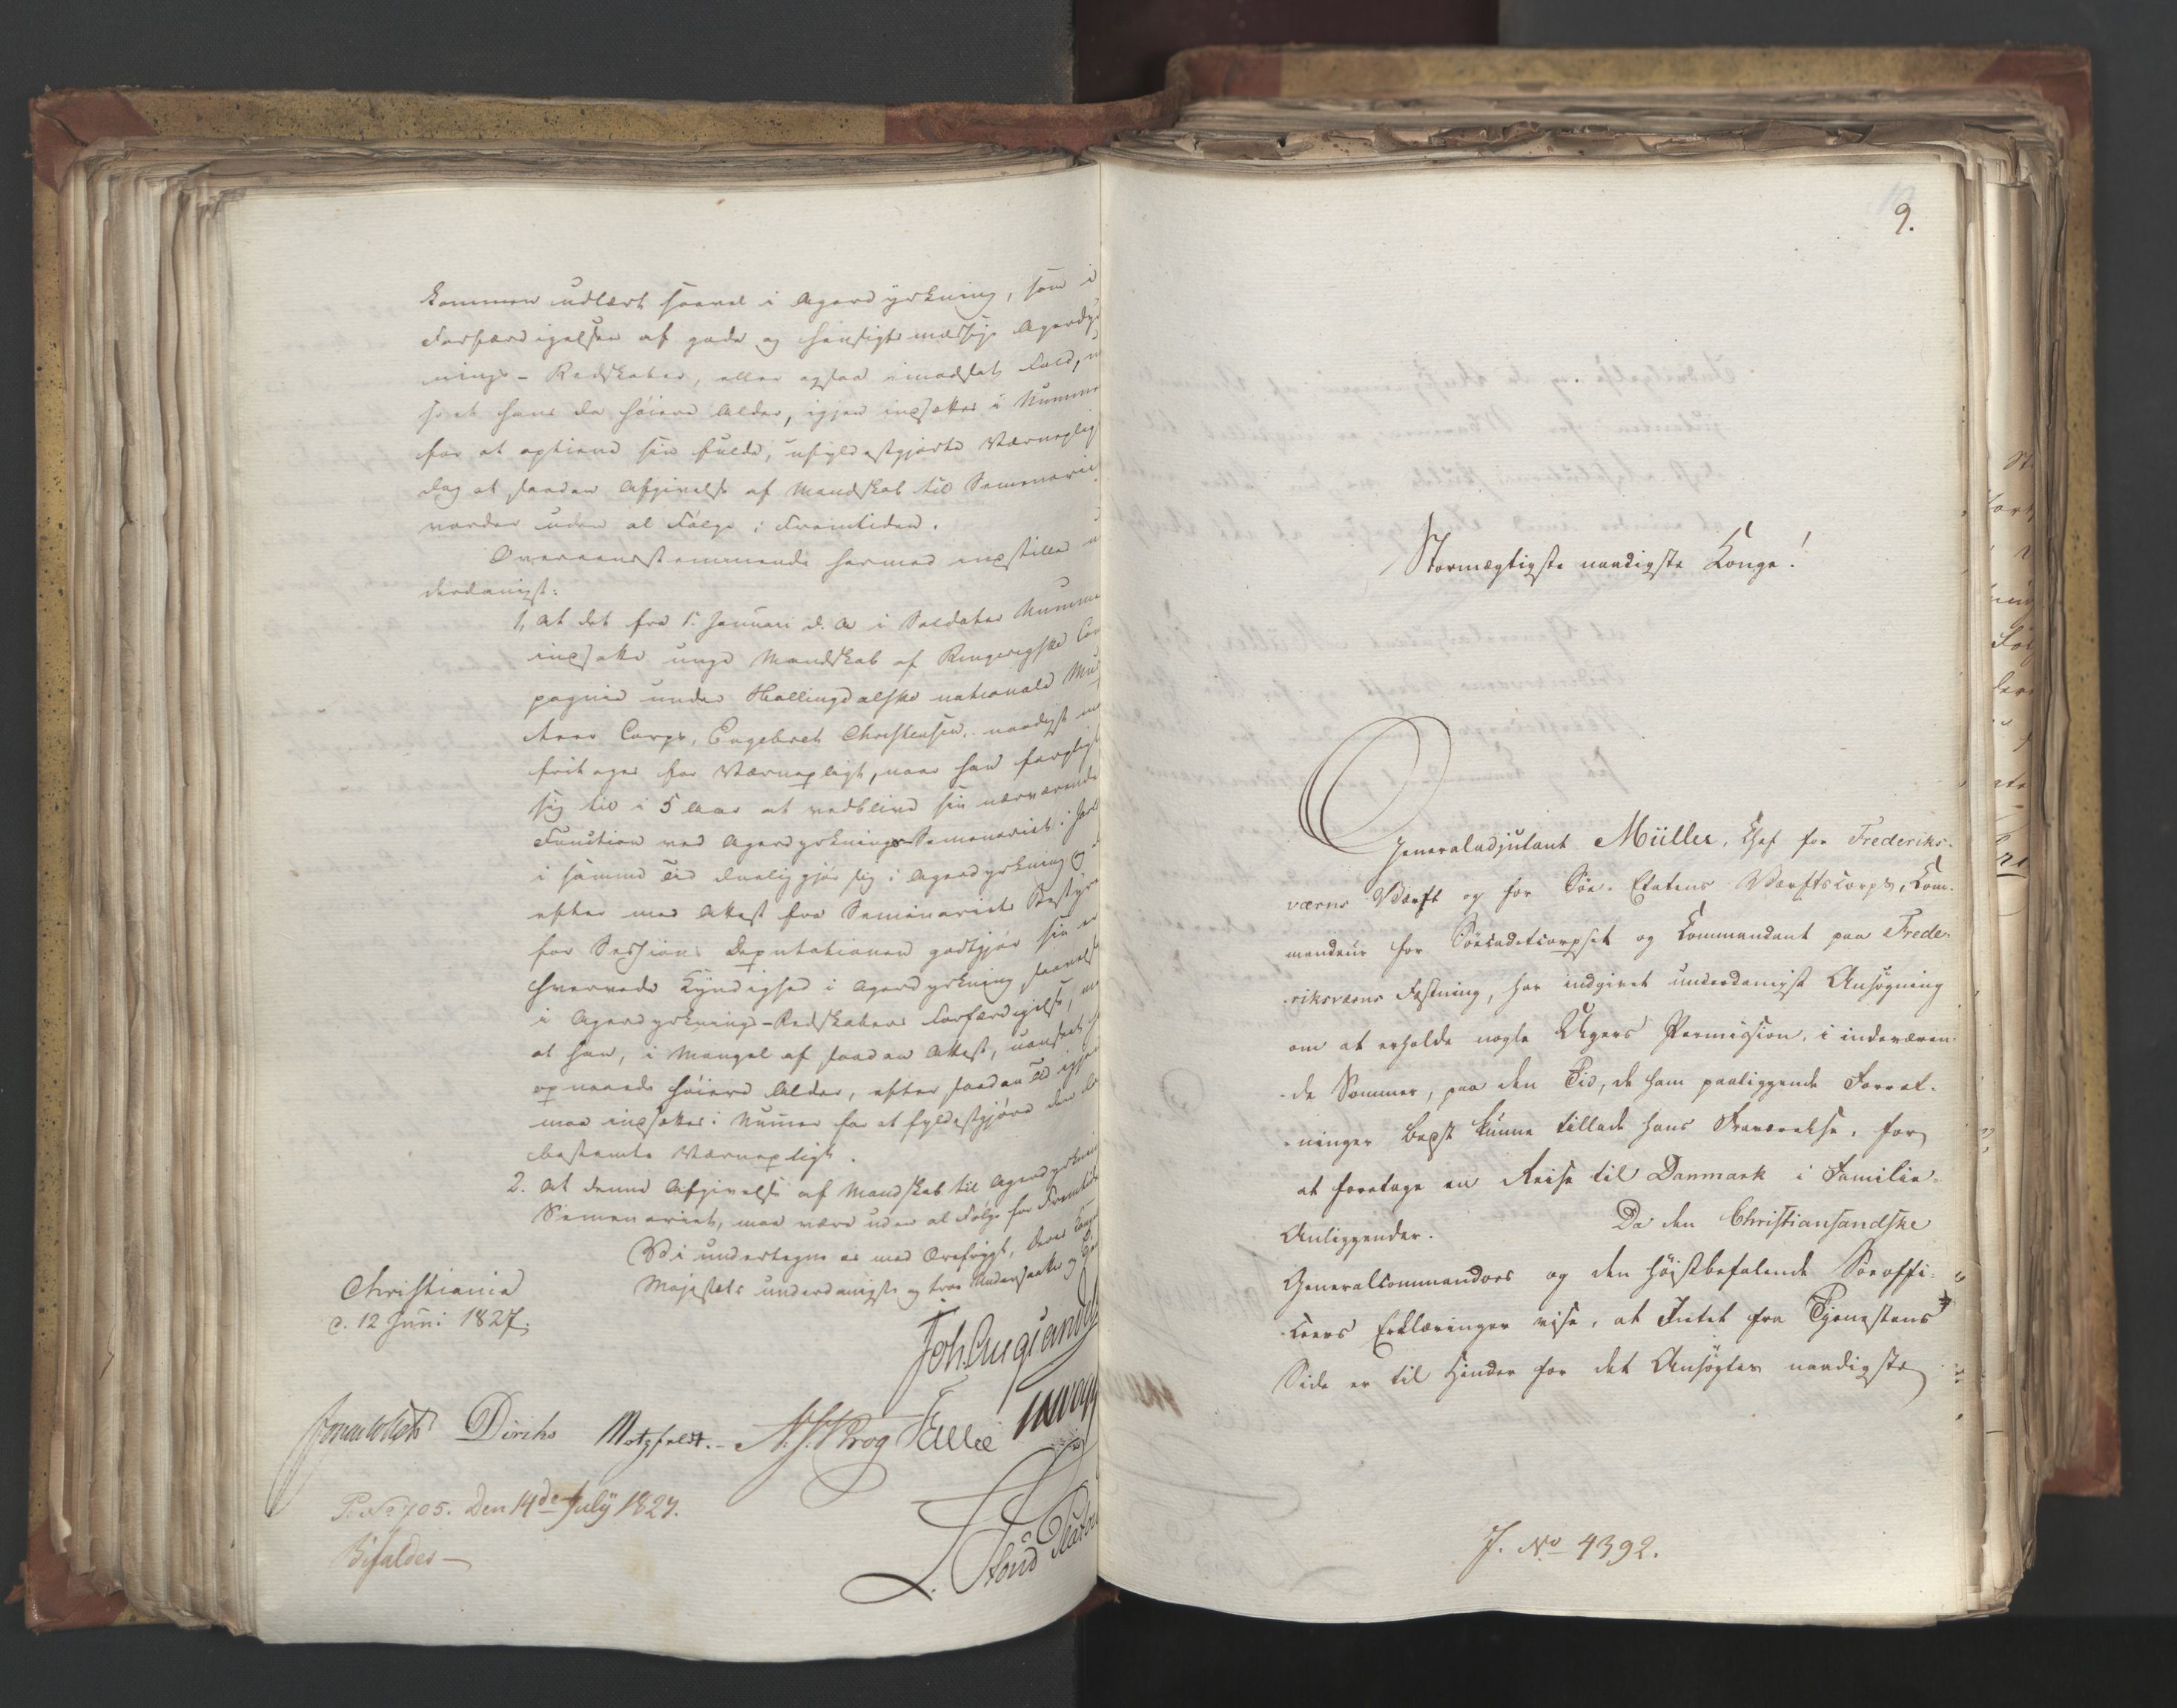 kommen udlært saavel i Agerdyrkning, som i
Forfærdigelsen af gode og hensigtsmæssige Agerdyrk
nings-Redskaber, eller ogsaa i modsat Fald,
seet hans da høiere Alder, igjen indsættes i Numme
for at optjene sin fulde, ufyldestgjorte Værneplig
dog at saadan Afgivelse af Mandskab til Seminarie
vorder uden al Følge i Fremtiden.
Overeensstemmende hermed indstilles
derdanigst:
1, At det fra 1. Januari d. A. i Soldater Numme
indsatte unge Mandskab af Ringerigske Com
pagnie under Hallingdalske nationale Mus
keteer Corps, Engebret Christensen, naadigst
fritages for Værnepligt, naar han forpligt
sig til i 5 Aar at vedblive sin nærværende
Function ved Agerdyrknings Seminariet,
i samme Tid dueliggjør sig i Agerdyrkning og
efter med Attest fra Seminariets Bestyre
for Sessions Deputationen godtgjør sin
hvervede Kyndighed i Agerdyrkning saavelso
i Agerdyrknings-Redskabers Forfærdigelse,
at han, i Mangel af saadan Attest, uanseet
opnaaede høiere Alder, efter saadan Tid igjen
maa indsættes i Numer for at fyldestgjøre den
bestemte Værnepligt.
2. At denne Afgivelse af Mandskab til Agerdyrknin
Seminariet, maa være uden al Følge for Fremtide
Vi undertegne os med Ærefrygt, Deres Konge
Majestæts underdanigste og troe Undersaatter og
Christiania
d. 12 Juni 1827.
Jonas Collett Diriks Motzfeldt. N. J. Krog
P. No 705. Den 14de July 1827.
Bifaldes —
9.
Stormægtigste naadigste Konge!
Generaladjutant Müller, Chef for Frederiks-
værns Værft og for Søe-Etatens Værftscorps, Com-
mandeur for Søecadetcorpset og Commandant paa Frede-
riksværns Fæstning, har indgivet underdanigst Ansøgning
om at erholde nogle Ugers Permission, i indeværen-
de Sommer, paa den Tid, de ham paaliggende Forret-
ninger bedst kunne tillade hans Fraværelse, for
at foretage en Reise til Danmark i Familie-
Anliggender. Da den Christiansandske
Generalcommandos og den høistbefalende Søeoffi-
ceers Erklæringer vise, at Intet fra Tjenestens
Side er til Hinder for det Ansøgtes naadigste
J. No 4392.